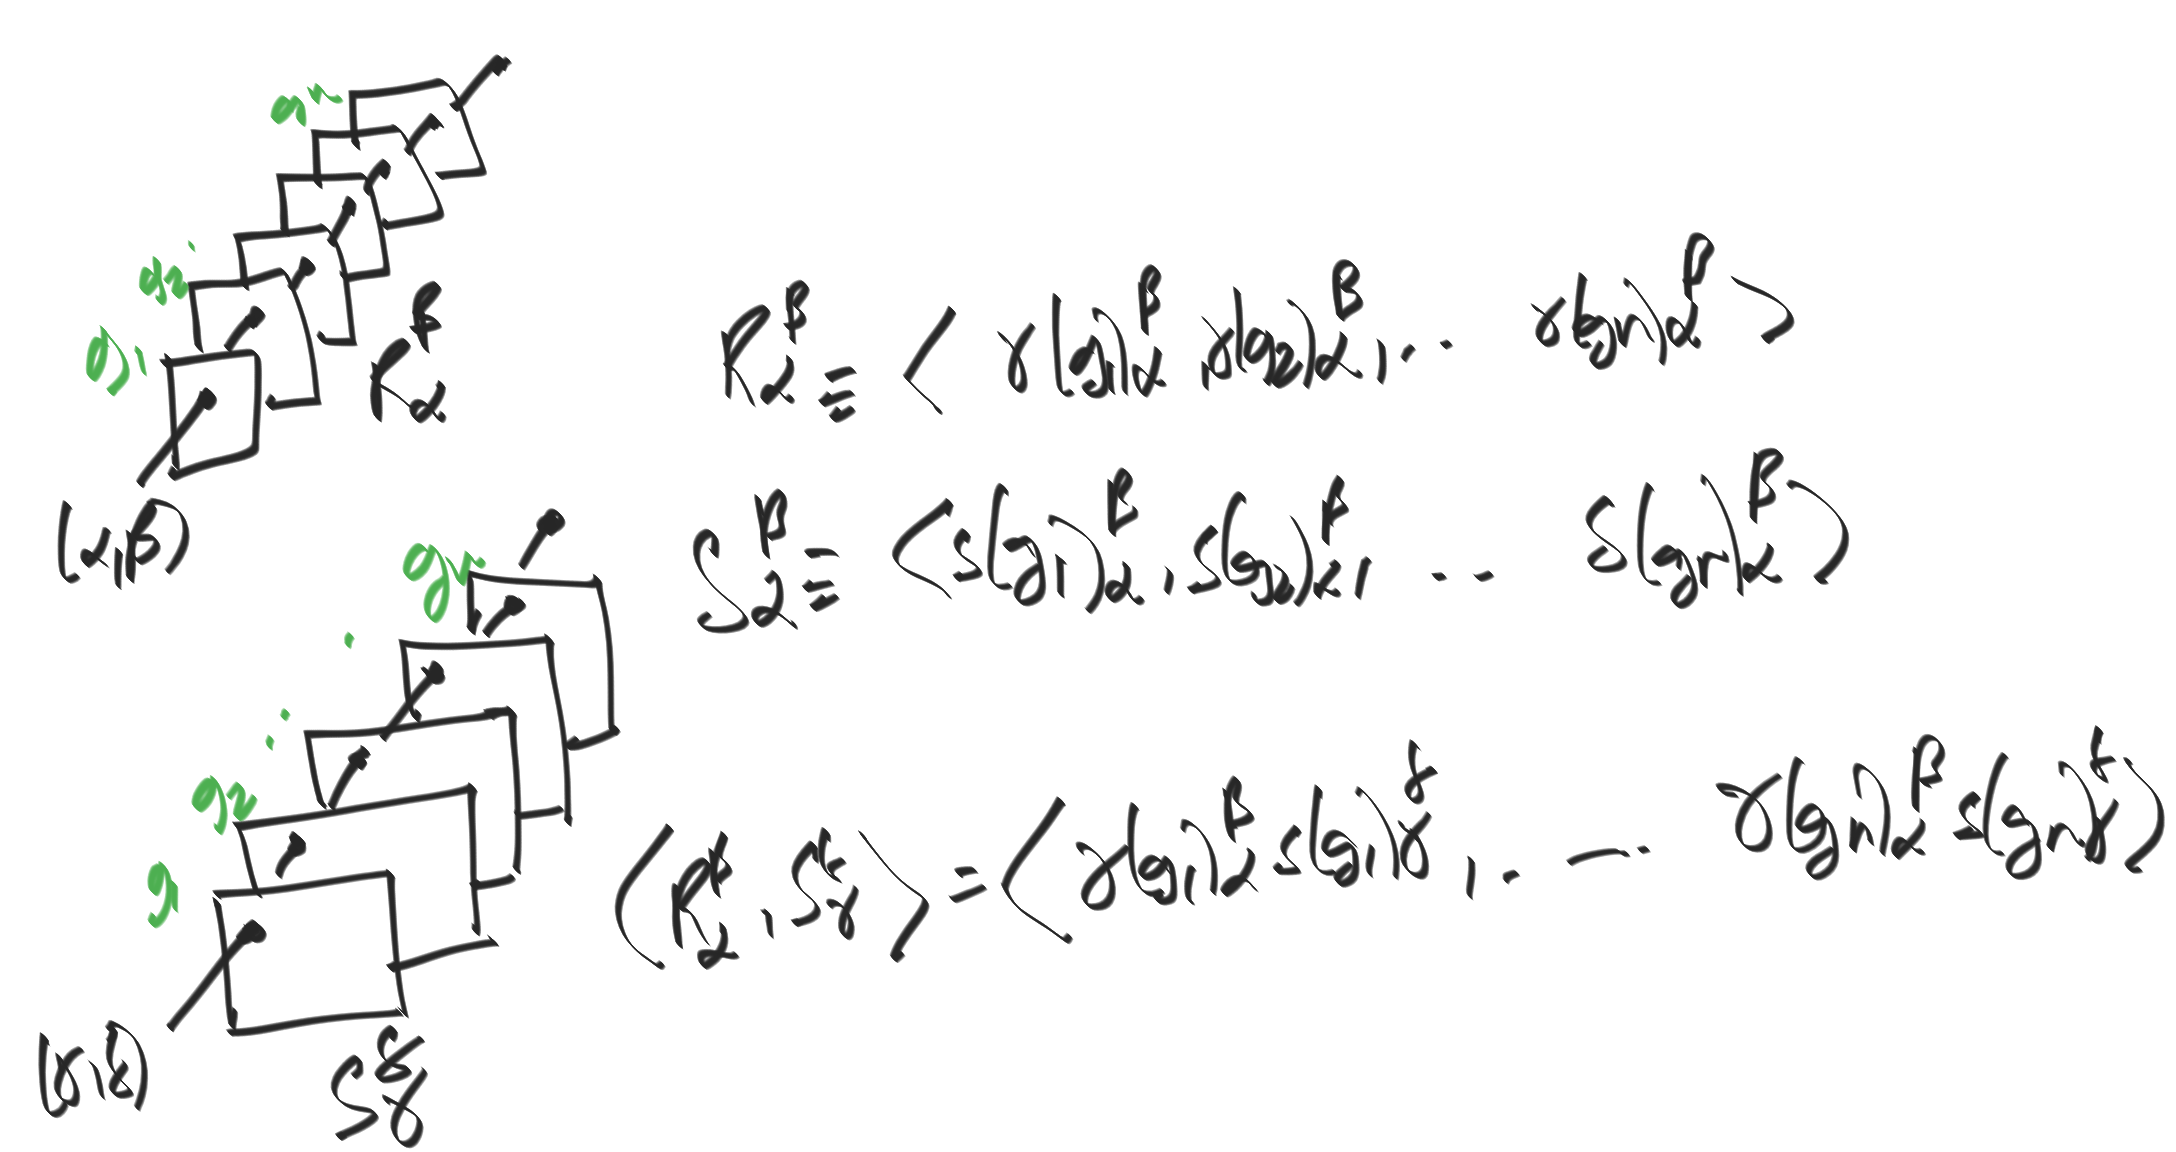 gn
g2
g1
R_α^β
(α,β)
R_α^β ≡ < r(g1)_α^β, r(g2)_α^β, ... r(gn)_α^β >
S_α^β ≡ < s(g1)_α^β, s(g2)_α^β, ... s(gn)_α^β >
gn
g2
g1
(γ,δ)
S_γ^δ
= < r(g1)_α^β s(g1)_γ^δ, ... r(gn)_α^β s(gn)_γ >